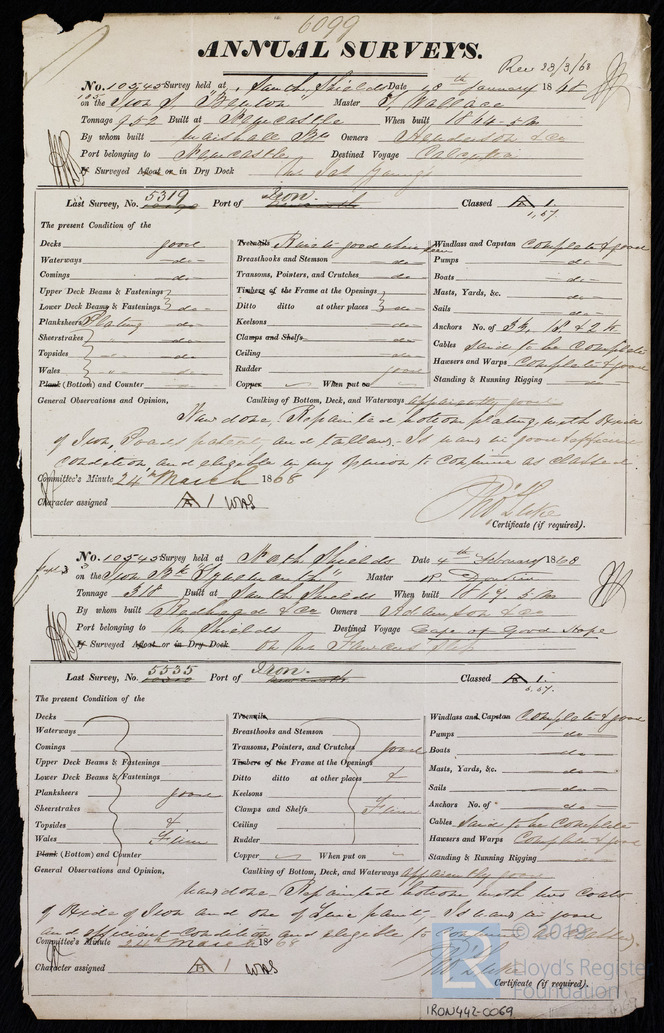 6099
ANNUAL SURVEYS.
Rec 23/3/68
No. 10545 Survey held at South Shields Date 10th January 1868
on the Iron S. Master Wallace
Tonnage 952 Built at Newcastle When built 1864-5m
By whom built Marshall Bro Owners Henderson & Co
Port belonging to Newcastle Destined Voyage
If Surveyed Afloat or in Dry Dock
Last Survey, No. 5319 Port of Iron. Classed A 1
1,67.
The present Condition of the
Decks good
Waterways do
Comings do
Upper Deck Beams & Fastenings
Lower Deck Beams & Fastenings do
Planksheers Plating do
Sheerstrakes
Topsides
Wales
Plank (Bottom) and Counter
Treenails Rivets good where seen
Breasthooks and Stemson do
Transoms, Pointers, and Crutches do
Timbers of the Frame at the Openings
Ditto ditto at other places do
Keelsons do
Clamps and Shelfs do
Ceiling do
Rudder good
Copper When put on
Windlass and Capstan Complete & good
Pumps do
Boats do
Masts, Yards, &c. do
Sails do
Anchors No. of 3b, 1s & 2k
Cables Said to be Complete
Hawsers and Warps Complete & good
Standing & Running Rigging
General Observations and Opinion, Caulking of Bottom, Deck, and Waterways apparently good
Now done. Repainted bottom plating with Oxide
of Iron, patent, and tallow. Is now in good & efficient
condition, and eligible in my opinion to continue as classed.
Committee's Minute 24th March 1868
Character assigned A 1
Thos Luke
Certificate (if required).
No. 10545 Survey held at North Shields Date 4th February 1868
on the Iron Bk "Tynemouth" Master R. Donkin
Tonnage 318 Built at South Shields When built 1867 5m
By whom built Readhead & Co Owners Adamson & Co
Port belonging to N. Shields Destined Voyage Cape of Good Hope
If Surveyed Afloat or in Dry Dock On the Slip
Last Survey, No. 5535 Port of Iron. Classed A 1.
5,67.
The present Condition of the
Decks
Waterways
Comings
Upper Deck Beams & Fastenings
Lower Deck Beams & Fastenings
Planksheers good
Sheerstrakes
Topsides &
Wales Firm
Plank (Bottom) and Counter
Treenails
Breasthooks and Stemson
Transoms, Pointers, and Crutches good
Timbers of the Frame at the Openings
Ditto ditto at other places &
Keelsons
Clamps and Shelfs Firm
Ceiling
Rudder
Copper When put on
Windlass and Capstan Complete & good
Pumps do
Boats do
Masts, Yards, &c. do
Sails do
Anchors No. of do
Cables Said to be Complete
Hawsers and Warps Complete & good
Standing & Running Rigging
General Observations and Opinion, Caulking of Bottom, Deck, and Waterways apparently good
Now done. Repainted bottom with two Coats
of Oxide of Iron and one of Zinc paint. Is now in good
and efficient Condition and eligible to continue as Classed.
Committee's Minute 24th March 1868
Character assigned A 1
Thos Luke
Certificate (if required).
© 2019
LR Lloyd's Register
Foundation
IRON442-0069